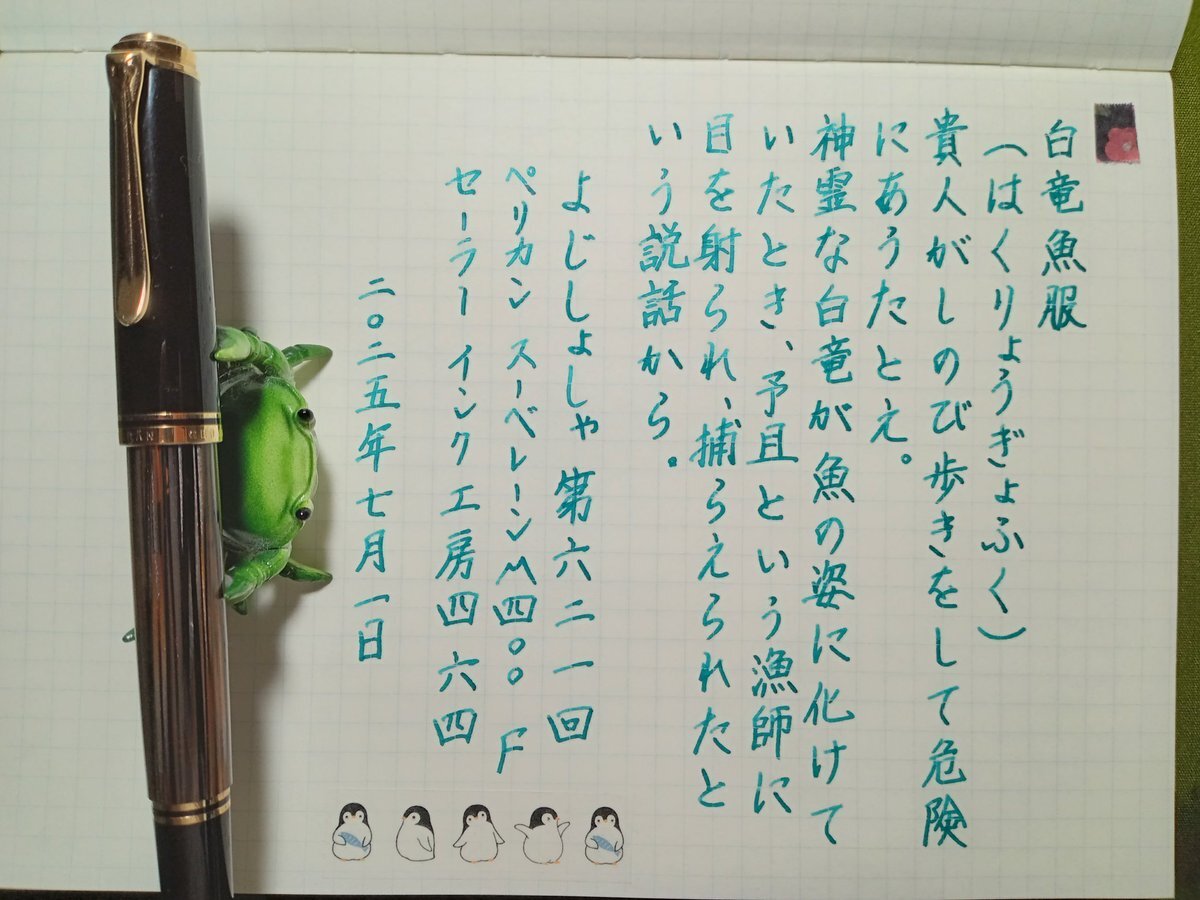 白竜魚服
(はくりょうぎょふく)
貴人がしのび歩きをして危険
にあうたとえ。
神霊な白竜が魚の姿に化けて
いたとき、予且という漁師に
目を射られ、捕らえられたと
いう説話から。
よじしょしゃ 第六二一回
ペリカン スーベレーンM四〇〇 F
セーラー インク工房四六四
二〇二五年七月一日